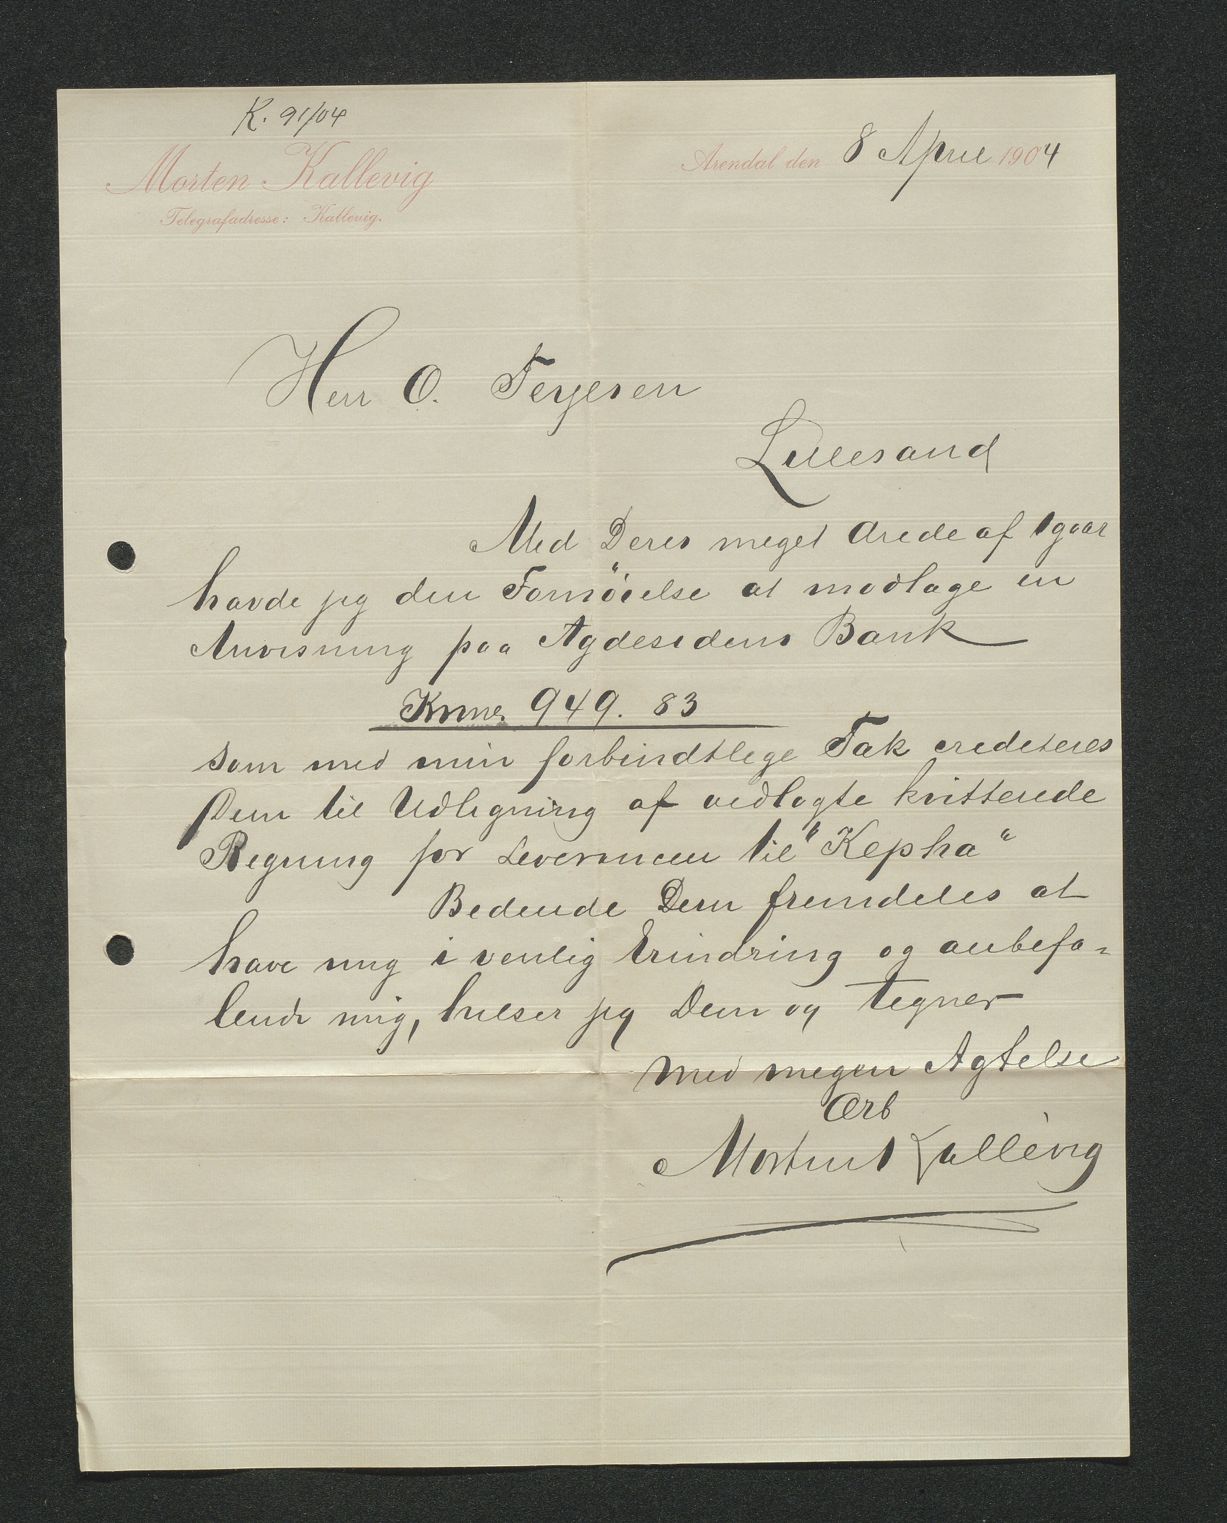 K. 91/04
Morten Kallevig
Telegrafadresse: Kallevig.
Arendal den 8 April 1904
Herr O. Terjesen
Lillesand
Med Deres meget ærede af igaar
havde jeg den Fornöielse at modtage en
Anvisning paa Agdesidens Bank
949. 83
som med min forbindtlige Tak crediteres
Dem til Udligning af vedlagte kvitterede
Regning for Leverancen til "Kepha"
Bedende Dem fremdeles at
have mig i venlig Erindring og anbefa=
lende mig, hilser jeg Dem og tegner
Med megen Agtelse
Ærb
Morten Kallevig